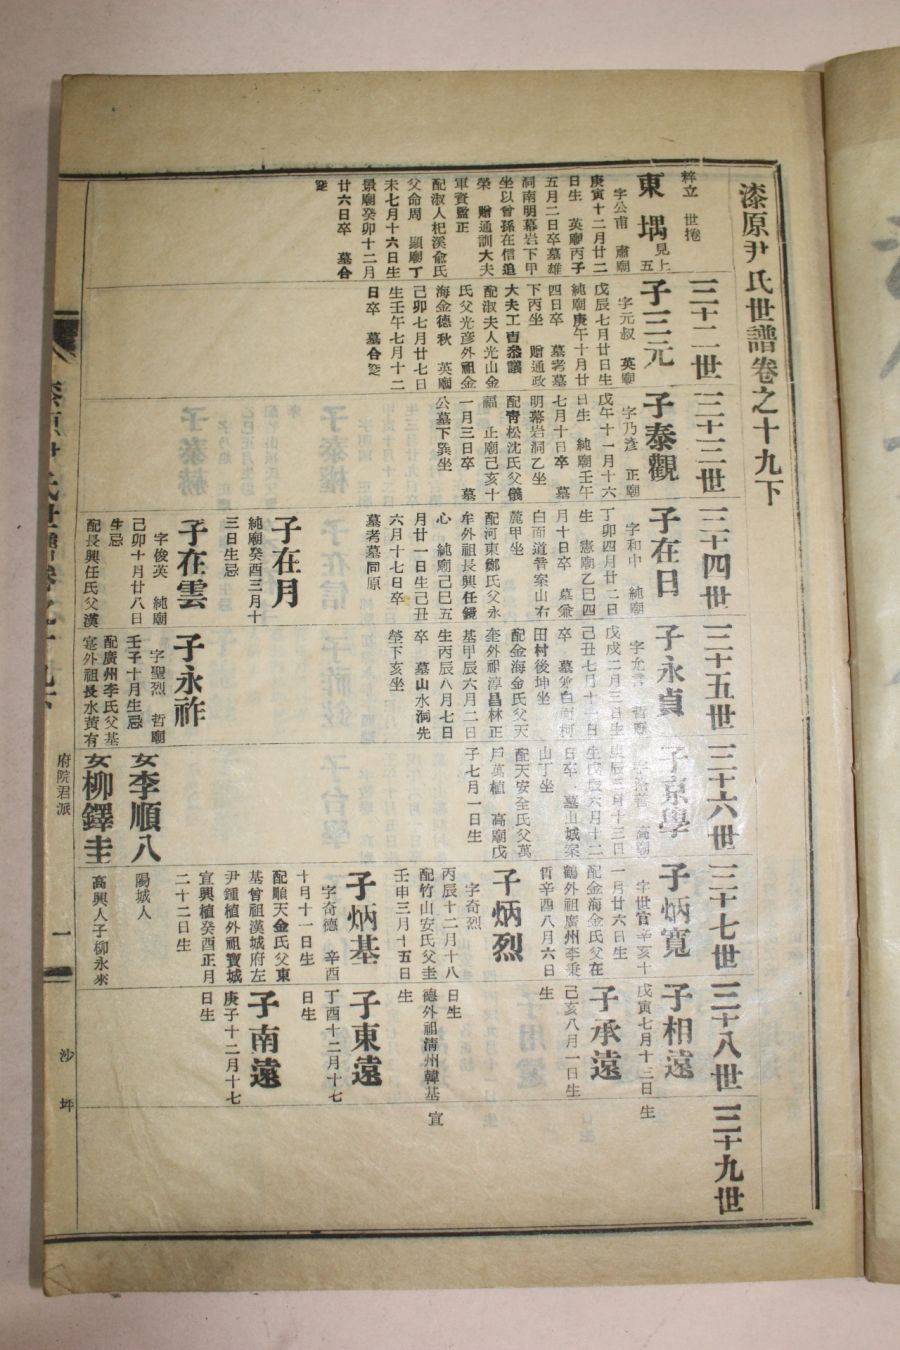 漆原尹氏世譜卷之十九下
粹立　世捲
東堣 見上五
字公甫　肅廟
庚寅十二月廿二
日生　英廟丙子
五月二日卒墓雄
洞南明幕岩下甲
坐以曾孫在信追
榮　贈通訓大夫
軍資監正
配淑人杞溪俞氏
父命周　顯廟丁
未七月十六日生
景廟癸卯十二月
廿六日卒　墓合
窆
三十二世
子三元
字元叔　英廟
戊辰七月廿日生
純廟庚午十月廿
四日卒　墓考墓
下丙坐　贈通政
大夫工曺參議
配淑夫人光山金
氏父光彦外祖金
海金德秋　英廟
己卯七月廿七日
生壬午七月十二
日卒　墓合窆
三十三世
子泰觀
字乃彦　正廟
戊午十一月十六
日生　純廟壬午
七月十日卒　墓
明幕岩洞乙坐
配靑松沈氏父儀
福　正廟己亥十
一月三日卒　墓
公墓下巽坐
三十四世
子在日
字和中　純廟
丁卯四月廿二日
生　憲廟乙巳四
月十日卒　墓兼
白面道晉案山右
麓甲坐
配河東鄭氏父永
牟外祖長興任鏡
心　純廟己巳五
月廿一日生己丑
六月十七日卒
墓考墓同原
子在月
純廟癸酉三月十
三日生忌
子在雲
字俊英　純廟
己卯十月廿八日
生忌
配長興任氏父漢
三十五世
子永貞
字允言
戊戌二月三日生
己丑七月十七日
卒　墓兼白耐柯
田村後坤坐
配金海金氏父天
奎外祖淳昌林正
基甲辰六月二日
生丙辰八月七日
卒　墓山水洞先
塋下亥坐
子永祚
字聖烈　哲廟
壬子十月生忌
配廣州李氏父基
寔外祖長水黃有
三十六世
子京學
高廟
三月十三日
生戊辰六月十二
日卒　墓山城案
山丁坐
配天安全氏父萬
戶萬植　高廟戊
子七月一日生
女李順八
女柳鐸圭
三十七世
子炳寬
字世官辛亥十
一月廿六日生
配金海金氏父在
鶴外祖廣州李秉
哲辛酉八月六日
子炳烈
字奇烈
丙辰十二月十八
配竹山安氏父圭
壬申三月十五日
子炳基
字奇德　辛酉
十月十一日生
配順天金氏父東
基曾祖漢城府左
尹鍾植外祖寶城
宣興植癸酉正月
二十二日生
陽城人
高興人子柳永來
三十八世
子相遠
戊寅七月十三日
生
子承遠
己亥八月一日生
生
日生
德外祖清州韓基
宣
生
子東遠
丁酉十二月十七
日生
子南遠
庚子十二月十七
日生
三十九世
漆原尹氏世譜卷之十九下
府院君派
一
沙坪